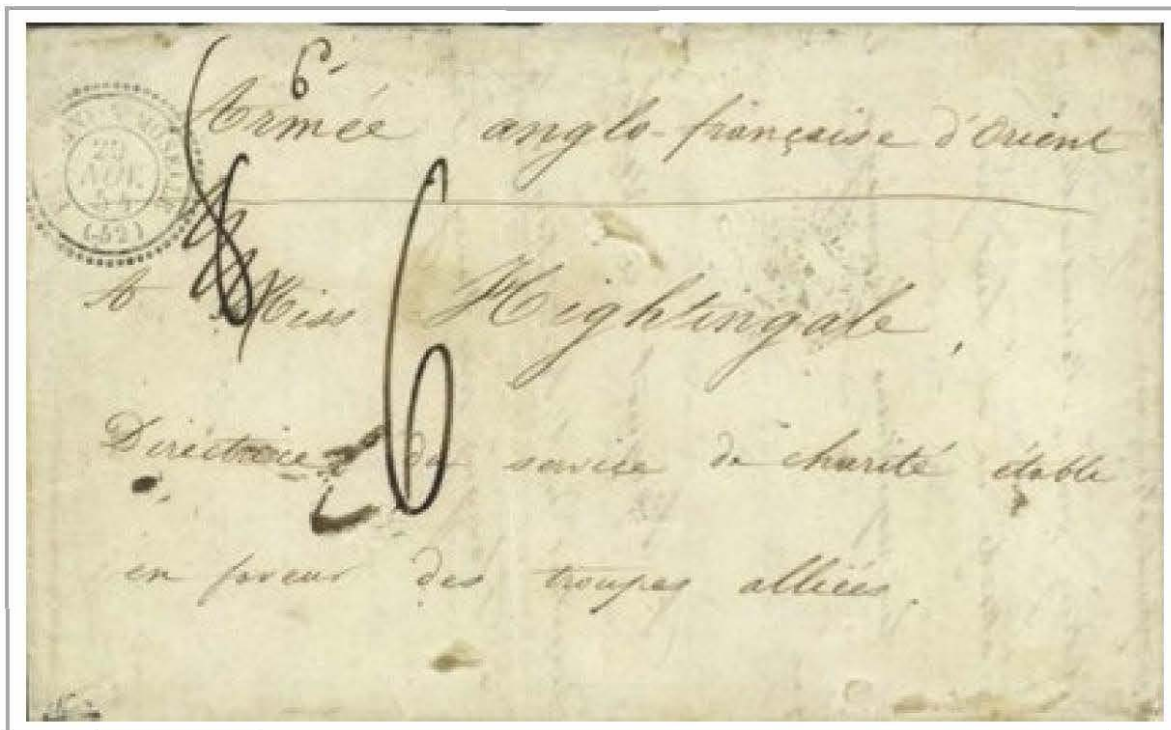 6
Armée anglo-française d'Orient
29
NOV.
54
(52)
A Miss Nightingale,
6
Directrice du service de charité établi
en faveur des troupes alliées.